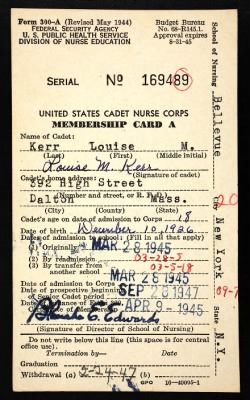 Form 300-A (Revised May 1944)
FEDERAL SECURITY AGENCY
U. S. PUBLIC HEALTH SERVICE
DIVISION OF NURSE EDUCATION
Budget Bureau
No. 68-R145.1.
Approval expires
8-31-45
SERIAL No 169489
UNITED STATES CADET NURSE CORPS
MEMBERSHIP CARD A
Name of Cadet:
Kerr Louise M.
(Last) (First) (Middle initial)
Louise M. Kerr
Cadet's home address: (Signature of cadet)
292 High Street
(Number and street, or R. F. D.)
Dalton Mass.
(City) (County) (State)
Cadet's age on date of admission to Corps 18
Date of birth December 10, 1926
Date of admission to school: (Fill in all that apply)
(1) Originally MAR 28 1945
(2) By readmission 03-28-5
(3) By transfer from 03-5-18
another school
Date of admission to Corps MAR 28 1945
Date of prospective beginning
of Senior Cadet period SEP 28 1947
APR 9 - 1945
Edwards
(Signature of Director of School of Nursing)
Do not write below this line (this space for central
office use).
Termination by— Date
Graduation
Withdrawal (a) 2-24-47 (b)
GPO 16-40095-1
School of Nursing Bellevue
New York
State N.Y.
20
09-7